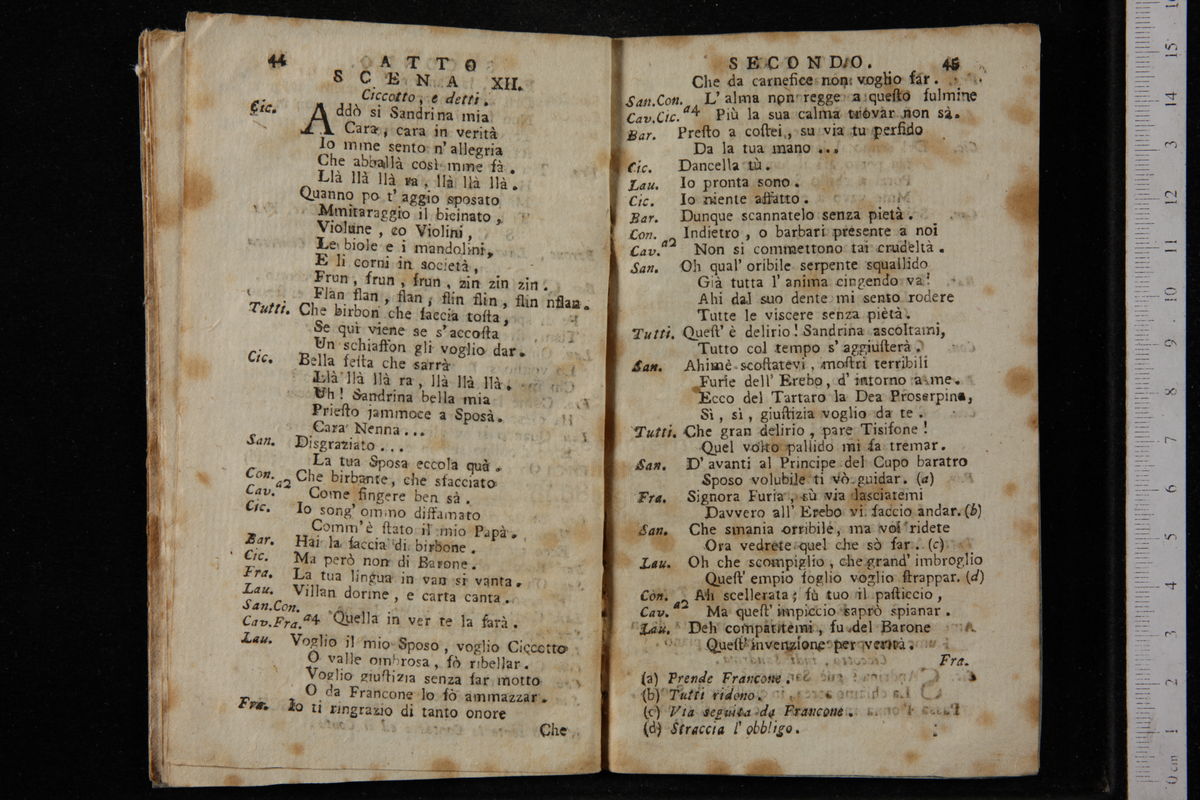 44 ATTO
SCENA XII.
Ciccotto, e detti.
Cic. Addò si Sandrina mia
Cara, cara in verità
Io mme sento n' allegria
Che abballà così mme fà.
Llà llà llà ra, llà llà llà.
Quanno po t' aggio sposato
Mmitaraggio il bicinato,
Violune, co Violini,
Le biole e i mandolini,
E li corni in società,
Frun, frun, frun, zin zin zin.
Flan flan, flan, flin flin, flin nflan.
Tutti. Che birbon che faccia tosta,
Se qui viene se s' accosta
Un schiaffon gli voglio dar.
Cic. Bella festa che sarrà
Llà llà llà ra, llà llà llà.
Uh! Sandrina bella mia
Priesto jammoce a Sposà.
Cara Nenna...
San. Disgraziato...
La tua Sposa eccola quà.
Con. Cav. a2 Che birbante, che sfacciato
Come fingere ben sà.
Cic. Io song' ommo diffamato
Comm' è stato il mio Papà.
Bar. Hai la faccia di birbone.
Cic. Ma però non di Barone.
Fra. La tua lingua in van si vanta.
Lau. Villan dorme, e carta canta.
San.Con.
Cav.Fra. a4 Quella in ver te la farà.
Lau. Voglio il mio Sposo, voglio Ciccotto
O valle ombrosa, fò ribellar.
Voglio giustizia senza far motto
O da Francone lo fò ammazzar.
Fra. Io ti ringrazio di tanto onore
Che
SECONDO. 45
Che da carnefice non voglio far.
San.Con. L' alma non regge a questo fulmine
Cav.Cic. a4 Più la sua calma trovar non sà.
Bar. Presto a costei, su via tu perfido
Da la tua mano...
Cic. Dancella tù.
Lau. Io pronta sono.
Cic. Io niente affatto.
Bar. Dunque scannatelo senza pietà.
Con. Indietro, o barbari presente a noi
Cav. a2 Non si commettono tai crudeltà.
San. Oh qual' oribile serpente squallido
Già tutta l' anima cingendo va!
Ahi dal suo dente mi sento rodere
Tutte le viscere senza pietà.
Tutti. Quest' è delirio! Sandrina ascoltami,
Tutto col tempo s' aggiusterà.
San. Ahimè scostatevi, mostri terribili
Furie dell' Erebo, d' intorno a me.
Ecco del Tartaro la Dea Proserpina,
Sì, sì, giustizia voglio da te.
Tutti. Che gran delirio, pare Tisifone!
Quel volto pallido mi fa tremar.
San. D' avanti al Principe del Cupo baratro
Sposo volubile ti vò guidar. (a)
Fra. Signora Furia, sù via lasciatemi
Davvero all' Erebo vi faccio andar. (b)
San. Che smania orribile, ma voi ridete
Ora vedrete quel che sò far. (c)
Lau. Oh che scompiglio, che grand' imbroglio
Quest' empio foglio voglio strappar. (d)
Con. Ah scellerata; fù tuo il pasticcio,
Cav. a2 Ma quest' impiccio saprò spianar.
Lau. Deh compatitemi, fu del Barone
Quest' invenzione per verità.
Fra.
(a) Prende Francone.
(b) Tutti ridono.
(c) Via seguita da Francone.
(d) Straccia l' obbligo.
0 cm 1 2 3 4 5 6 7 8 9 10 11 12 13 14 15 16